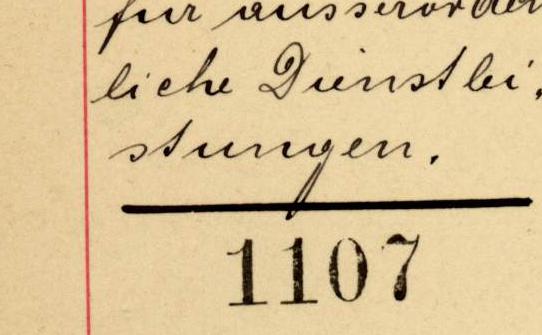 für ausserorden
liche Dienstlei.
stungen.
1107